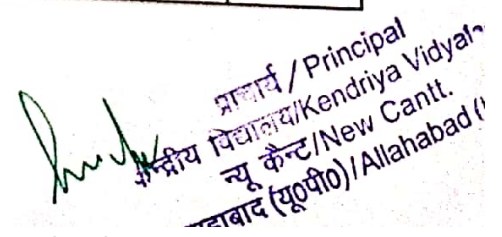 प्राचार्य / Principal
केन्द्रीय विद्यालय/Kendriya
न्यू कैन्ट/New Cantt.
(यू०पी०)/Allahabad